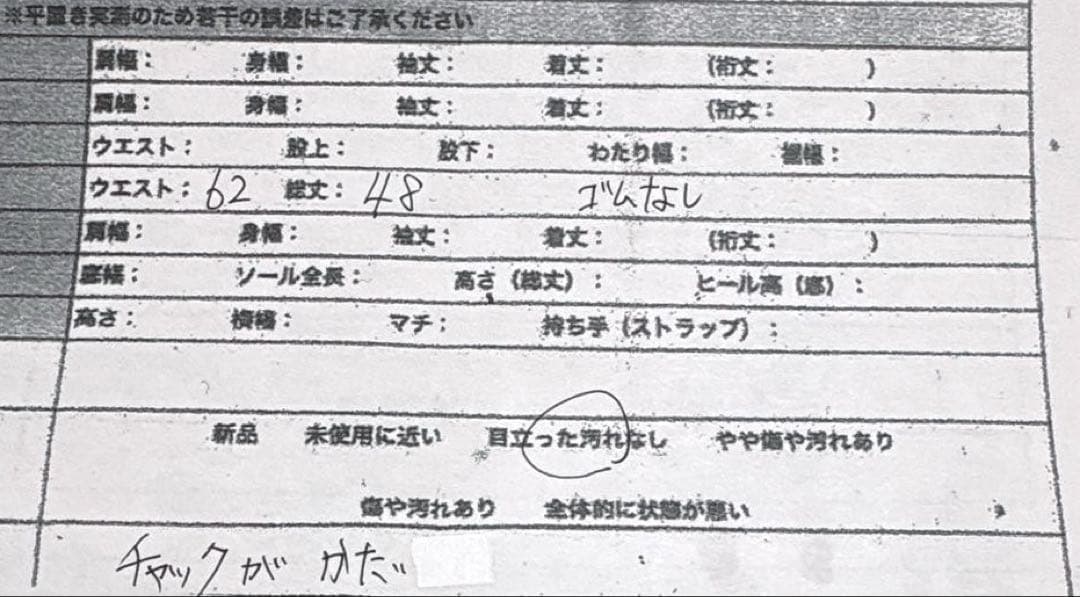 ※平置き実測のため若干の誤差はご了承ください
肩幅： 身幅： 袖丈： 着丈： (裄丈： )
肩幅： 身幅： 袖丈： 着丈： (裄丈： )
ウエスト： 股上： 股下： わたり幅： 裾幅：
ウエスト：62 総丈：48 ゴムなし
肩幅： 身幅： 袖丈： 着丈： (裄丈： )
底幅： ソール全長： 高さ（総丈）： ヒール高（底）：
高さ： 横幅： マチ： 持ち手（ストラップ）：
新品 未使用に近い 目立った汚れなし やや傷や汚れあり
傷や汚れあり 全体的に状態が悪い
チャックが かた